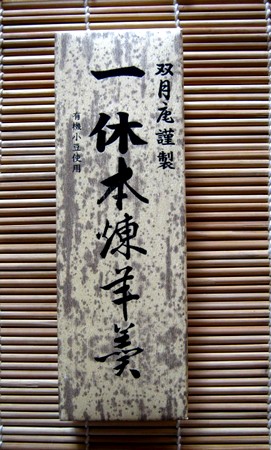 双月庵謹製
一休本煉羊羹
有機小豆使用